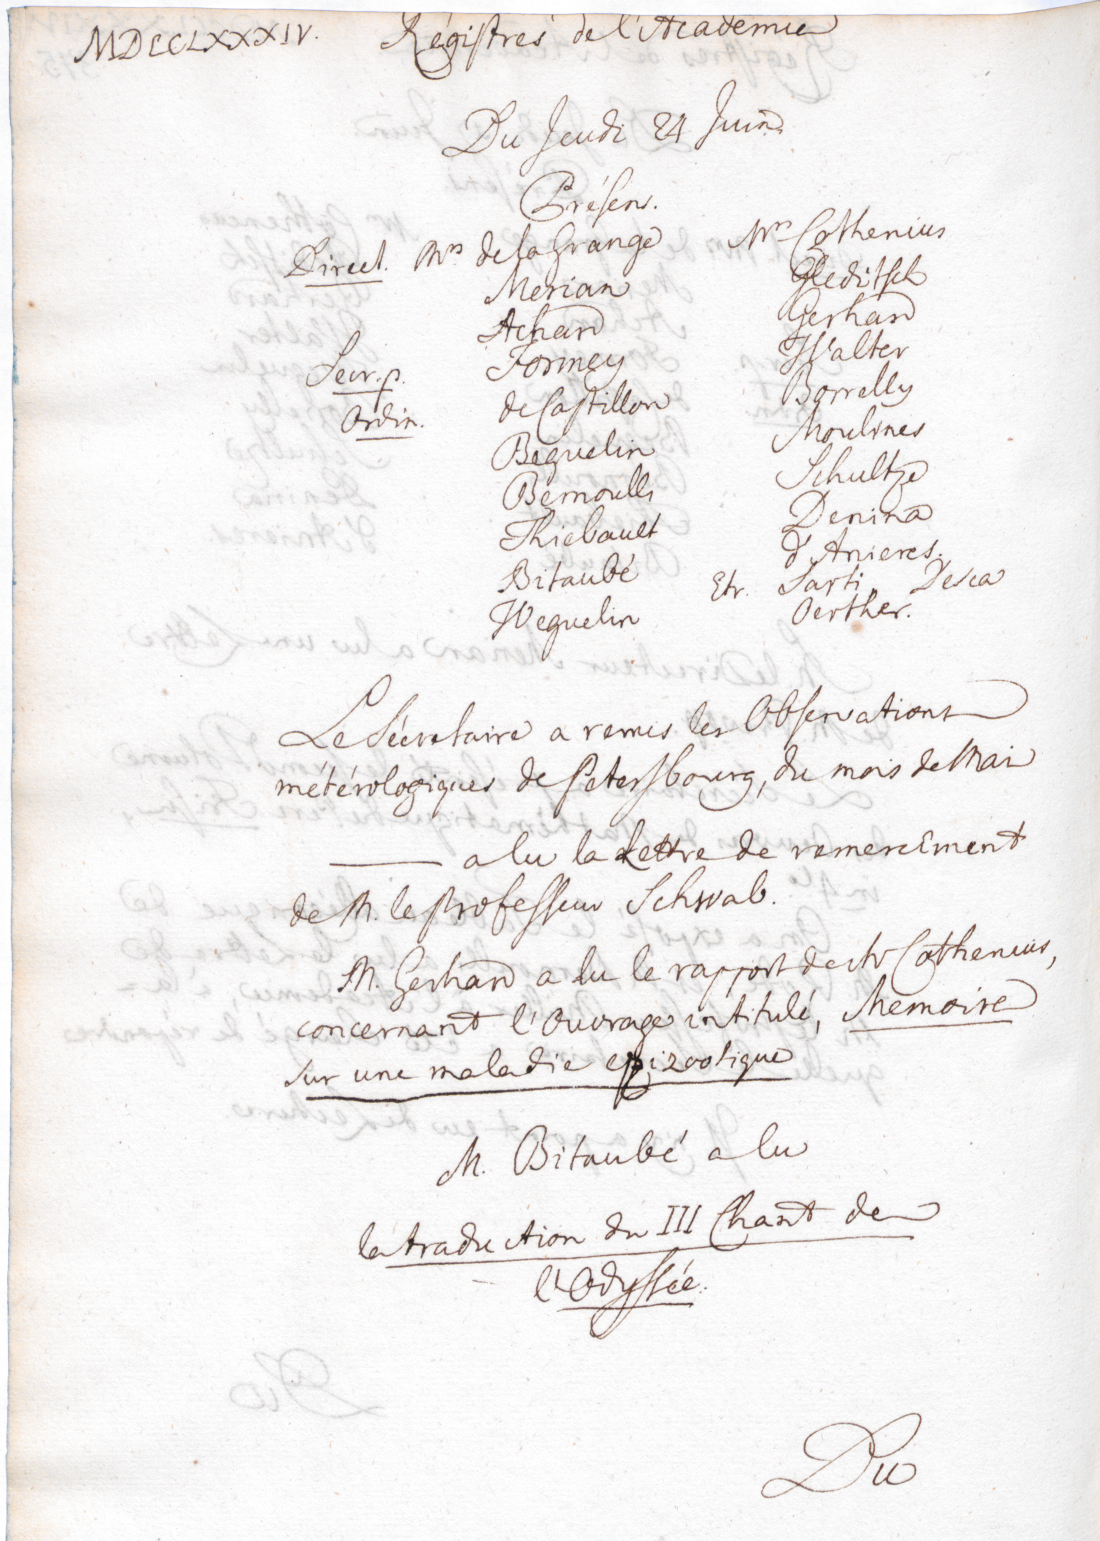 MDCCLXXXIV. Régistres de l'Academie
Du Jeudi 24 Juin.
Présens.
Direct. Mrs de la Grange Mrs Cothenius
Merian Gleditsch
Achard Gerhard
Secr. p. Formey Walter
Ordin. de Castillon Borrelly
Beguelin Moulines
Bernoulli Schultze
Thiebault Denina
Bitaubé d'Anieres.
Weguelin Etr. Sarti, Desca
Oerther.
Le Sécretaire a remis les Observations
météorologiques de Petersbourg, du mois de Mai
——— a lu la Lettre de remerciment
de M. le Professeur Schwab.
M. Gerhard a lu le rapport de Mr Cothenius,
concernant l'Ouvrage intitulé, Memoire
sur une maladie epizootique
M. Bitaubé a lu
la traduction du III Chant de
l'Odyssée.
Du